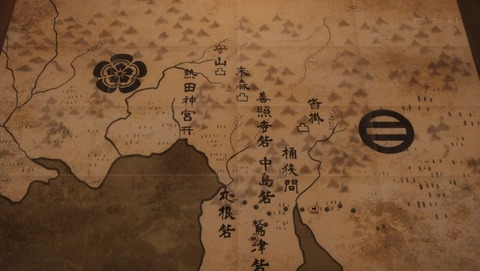 沓掛
桶狭間
善照寺砦
中島砦
鷲津砦
末森
守山
丸根砦
熱田神宮